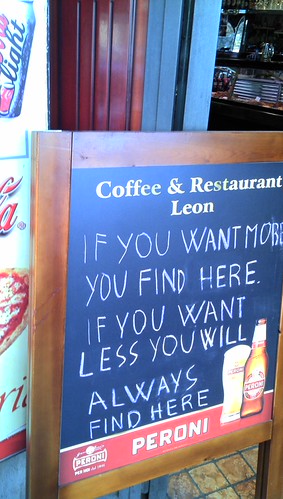 light
Coffee & Restaurant
Leon
IF YOU WANT MORE
YOU FIND HERE.
IF YOU WANT
LESS YOU WILL
ALWAYS
FIND HERE
PERONI
PERONI
PERONI
PERONI